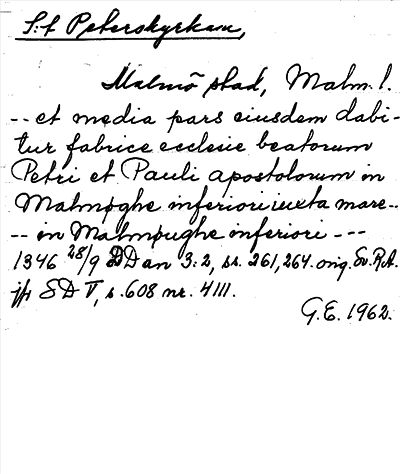 S:t Peterskyrkan,
Malmö stad, Malm. l.
-- et media pars eiusdem dabi-
tur fabrice ecclesie beatorum
Petri et Pauli apostolorum in
Malmøghe inferiori iuxta mare--
-- in Malmøughe inferiori ---
1346 28/9 DDan 3:2, ss. 261, 264. orig. Sv. R.A.
jfr SD V, s. 608 nr. 4111.
G.E. 1962.